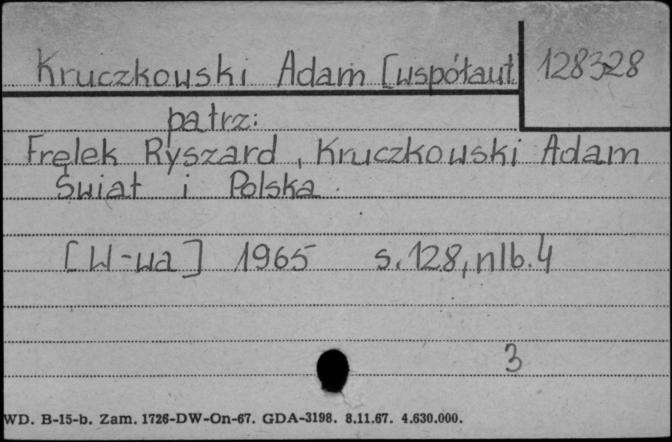 Kruczkowski Adam [współaut.
128328
patrz:
Frelek Ryszard, Kruczkowski Adam
Świat i Polska.
[W-wa] 1965 s.128, nlb.4
3
WD. B-15-b. Zam. 1726-DW-On-67. GDA-3198. 8.11.67. 4.630.000.